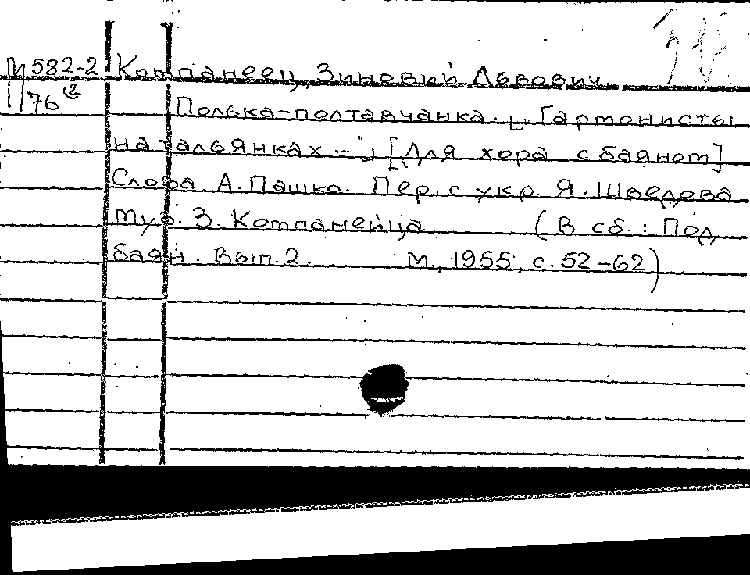 М582-2 Компанеец, Зиновий Львович
76 Полька-полтавчанка. "Гармонисты
на тальянках ..." [Для хора с баяном]
Слова А. Пашко. Пер. с укр. Я. Шведова
Муз. З. Компанейца (В сб.: Под
баян. Вып. 2. М., 1955, с. 52-62)